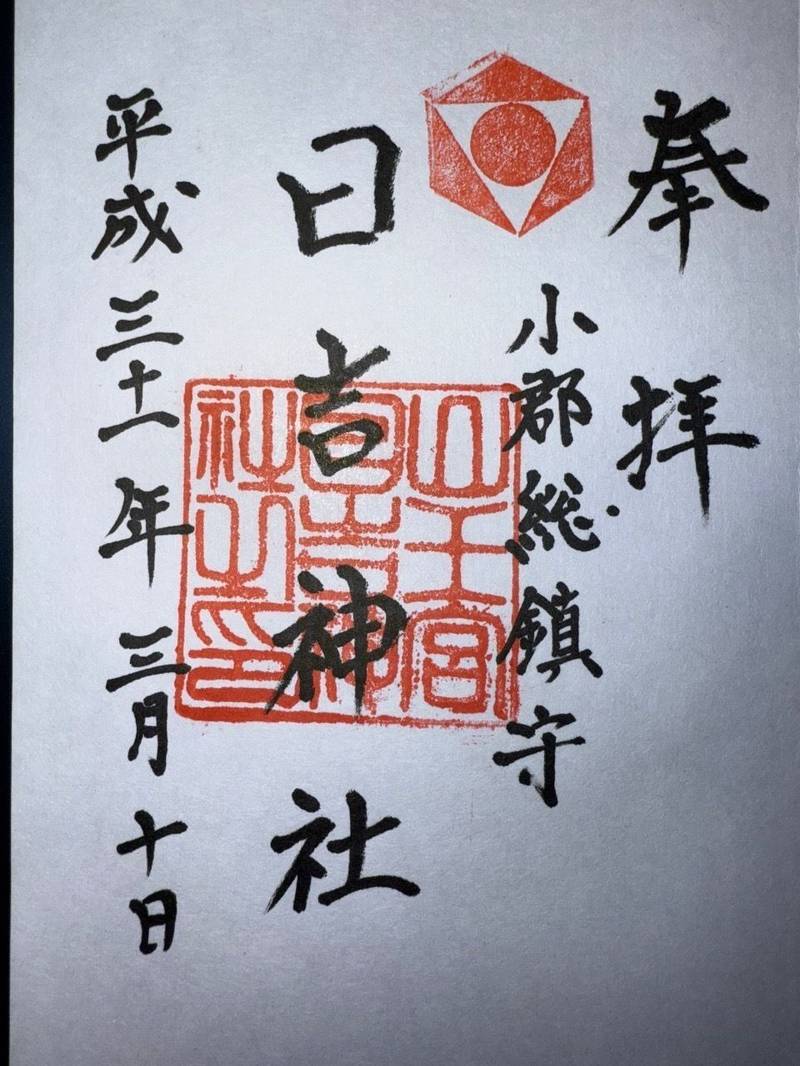 奉拝
小郡総鎮守
日吉神社
山王宮
日吉神
社之印
平成三十一年三月十日